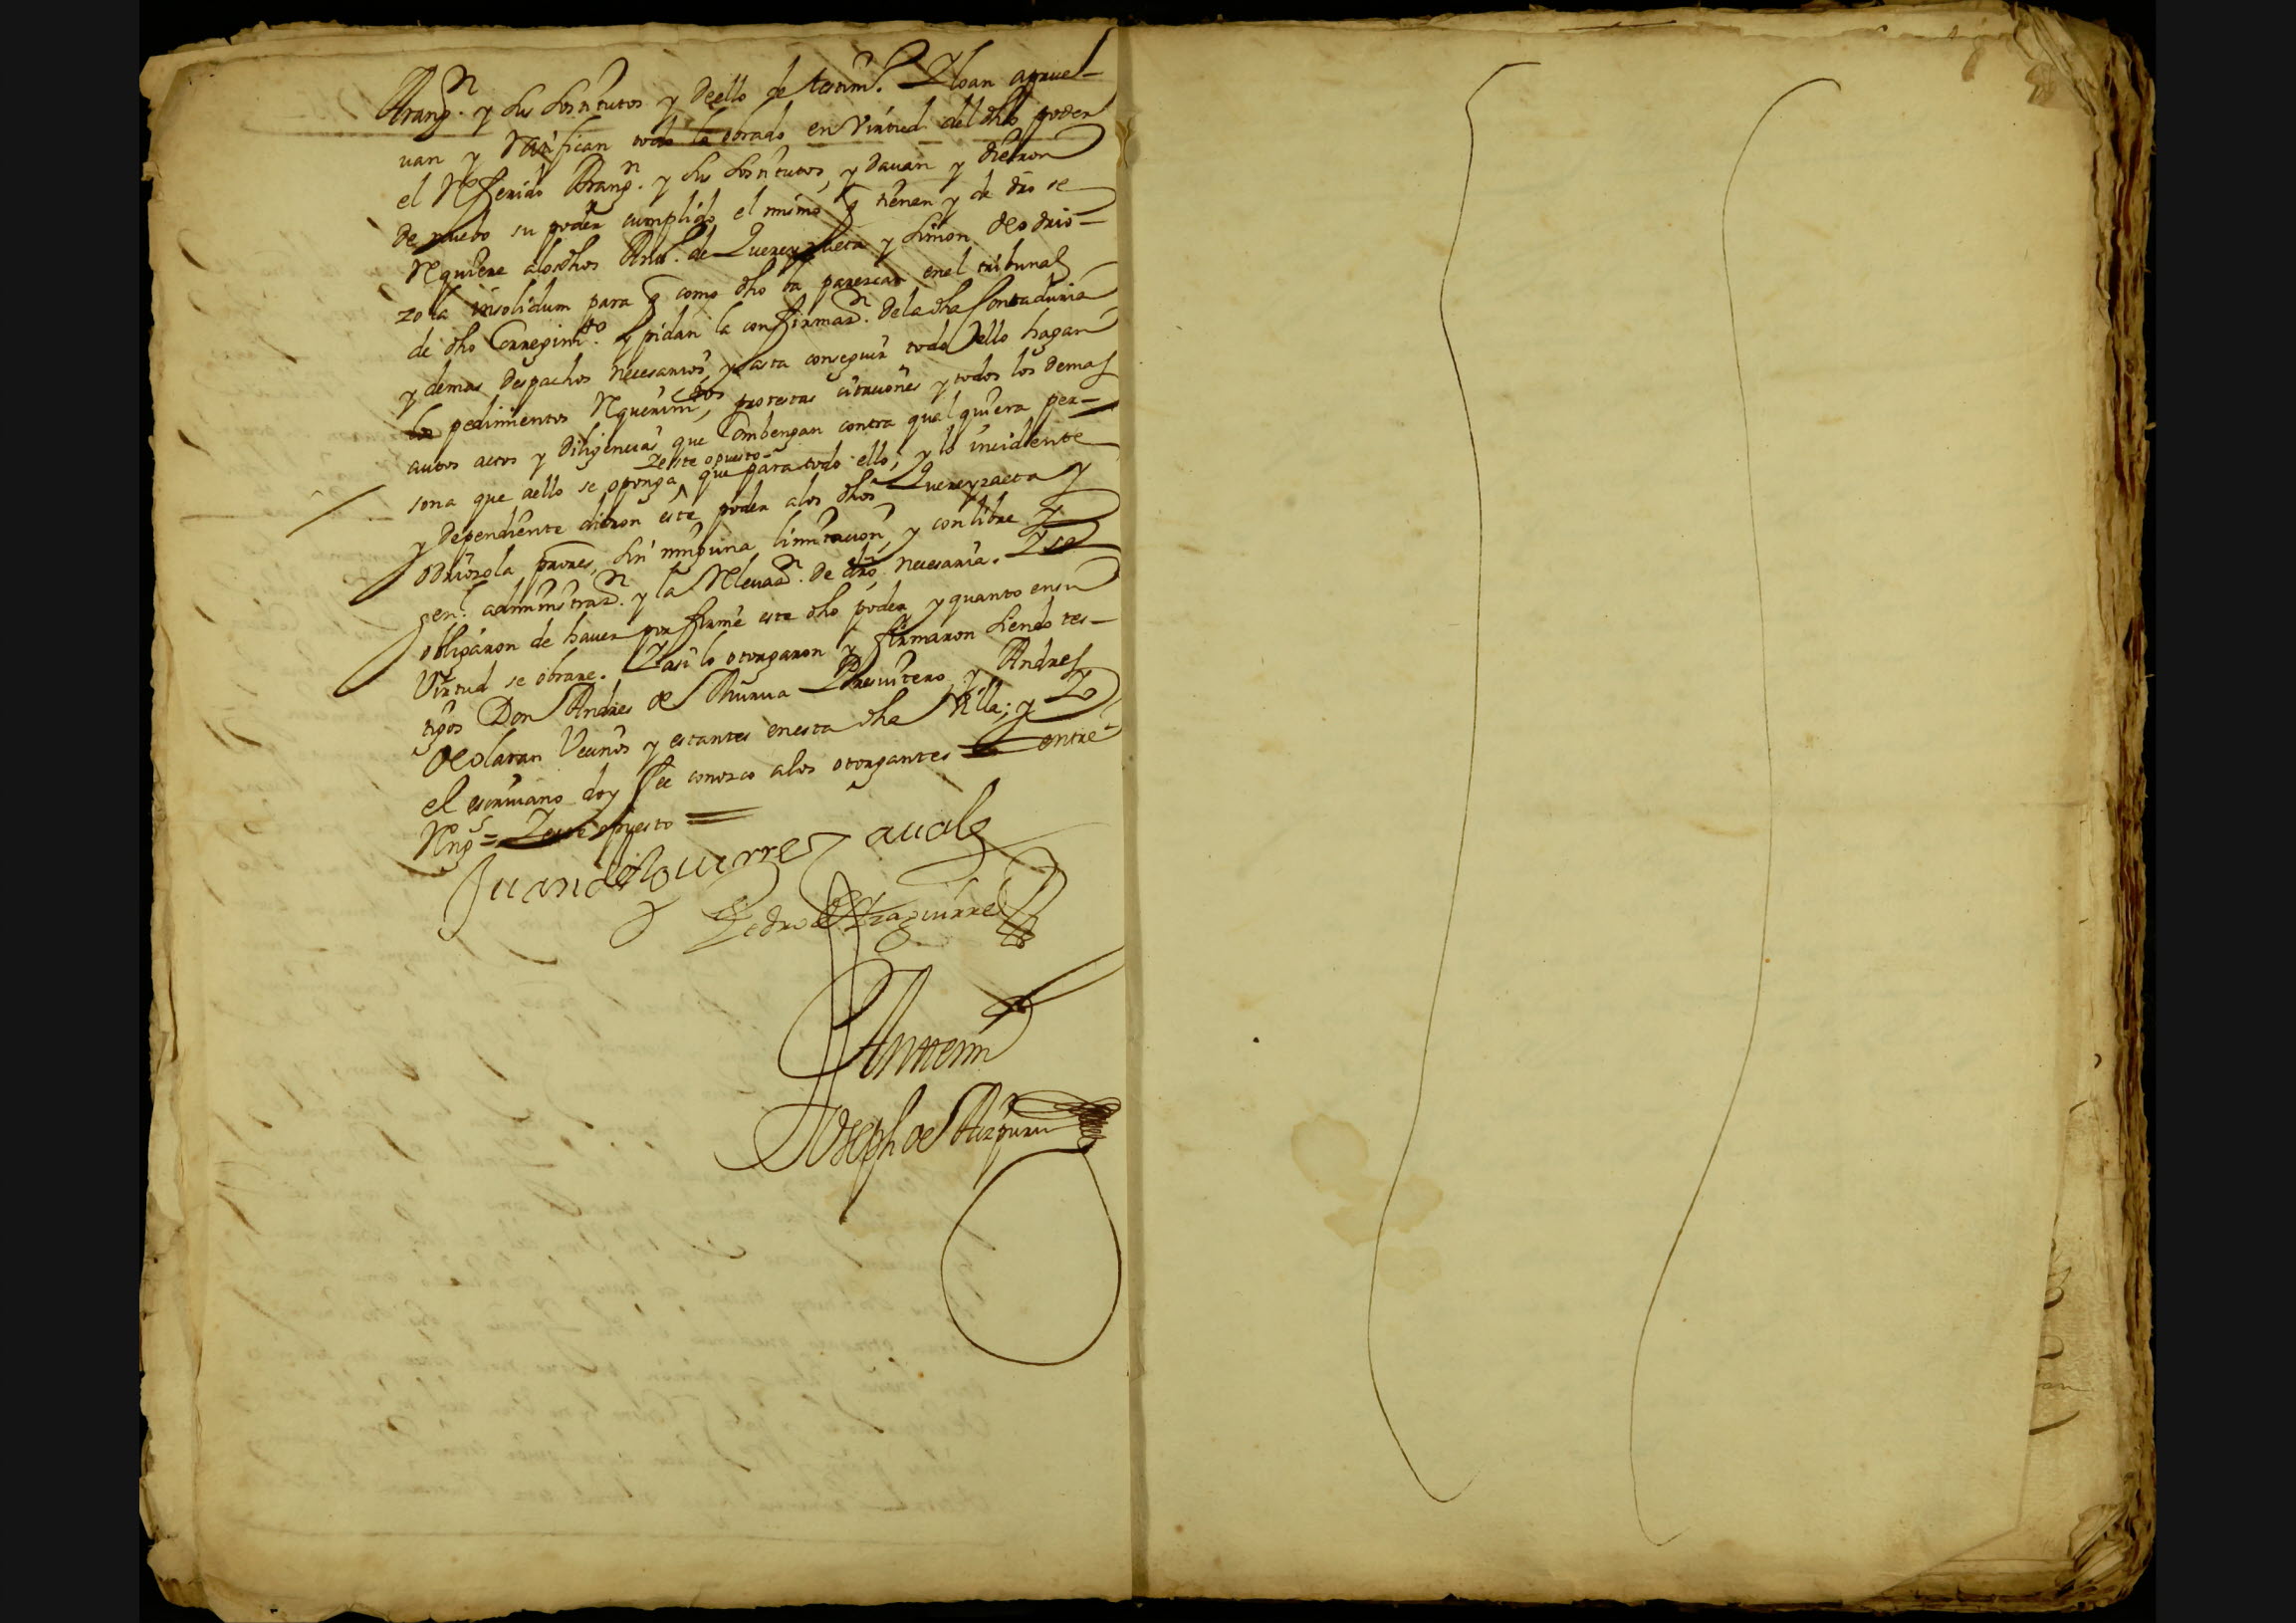 Arang.n y sus sostitutos y dello de testim.o Yloan aprue-
uan y Ratifican todo lo obrado en Virtud del dho poder
el Referido Arang.n y sus sostitutos, y dauan y dieron
de nuebo su poder cumplido el mismo q tienen y de dro se
Requiere alos dhos Ant.o de Quereyzaeta y Simon de odrio-
zola insolidum para q como dho ba parescan enel tribunal
de dho Corregim.to y pidan la confirmaz.n dela dha Contaduria
y demas despachos necesarios, y asta conseguir todo ello hagan
los pedimientos Requerim.tos, protestas citaciones y todos los demas
autos actos y diligencias que Combengan contra qual quiera per-
sona que aello se oponga, que para todo ello, y lo incidente
Yeste opuesto
y dependiente dieron este poder alos dhos Quereyzaeta y
odriozola prores, sin ninguna limitacion, y con libre y
gen.l administraz.n y la Releuaz.n de dro necesaria. Y se
obligaron de hauer por firme este dho poder, y quanto en su
Virtud se obrare. Y asi lo otorgaron y firmaron siendo tes-
tigos Don Andres de Presuitero, y Andres
de olaran Vecinos y estantes enesta dha Villa; y Yo
el escriuano doy fee conosco alos otorgantes entre
Reng.s = Yeste opuesto =
Juan de Aguirre Zauala
Pedro de Yzaguirre
Antemi
Joseph de Aizpuru